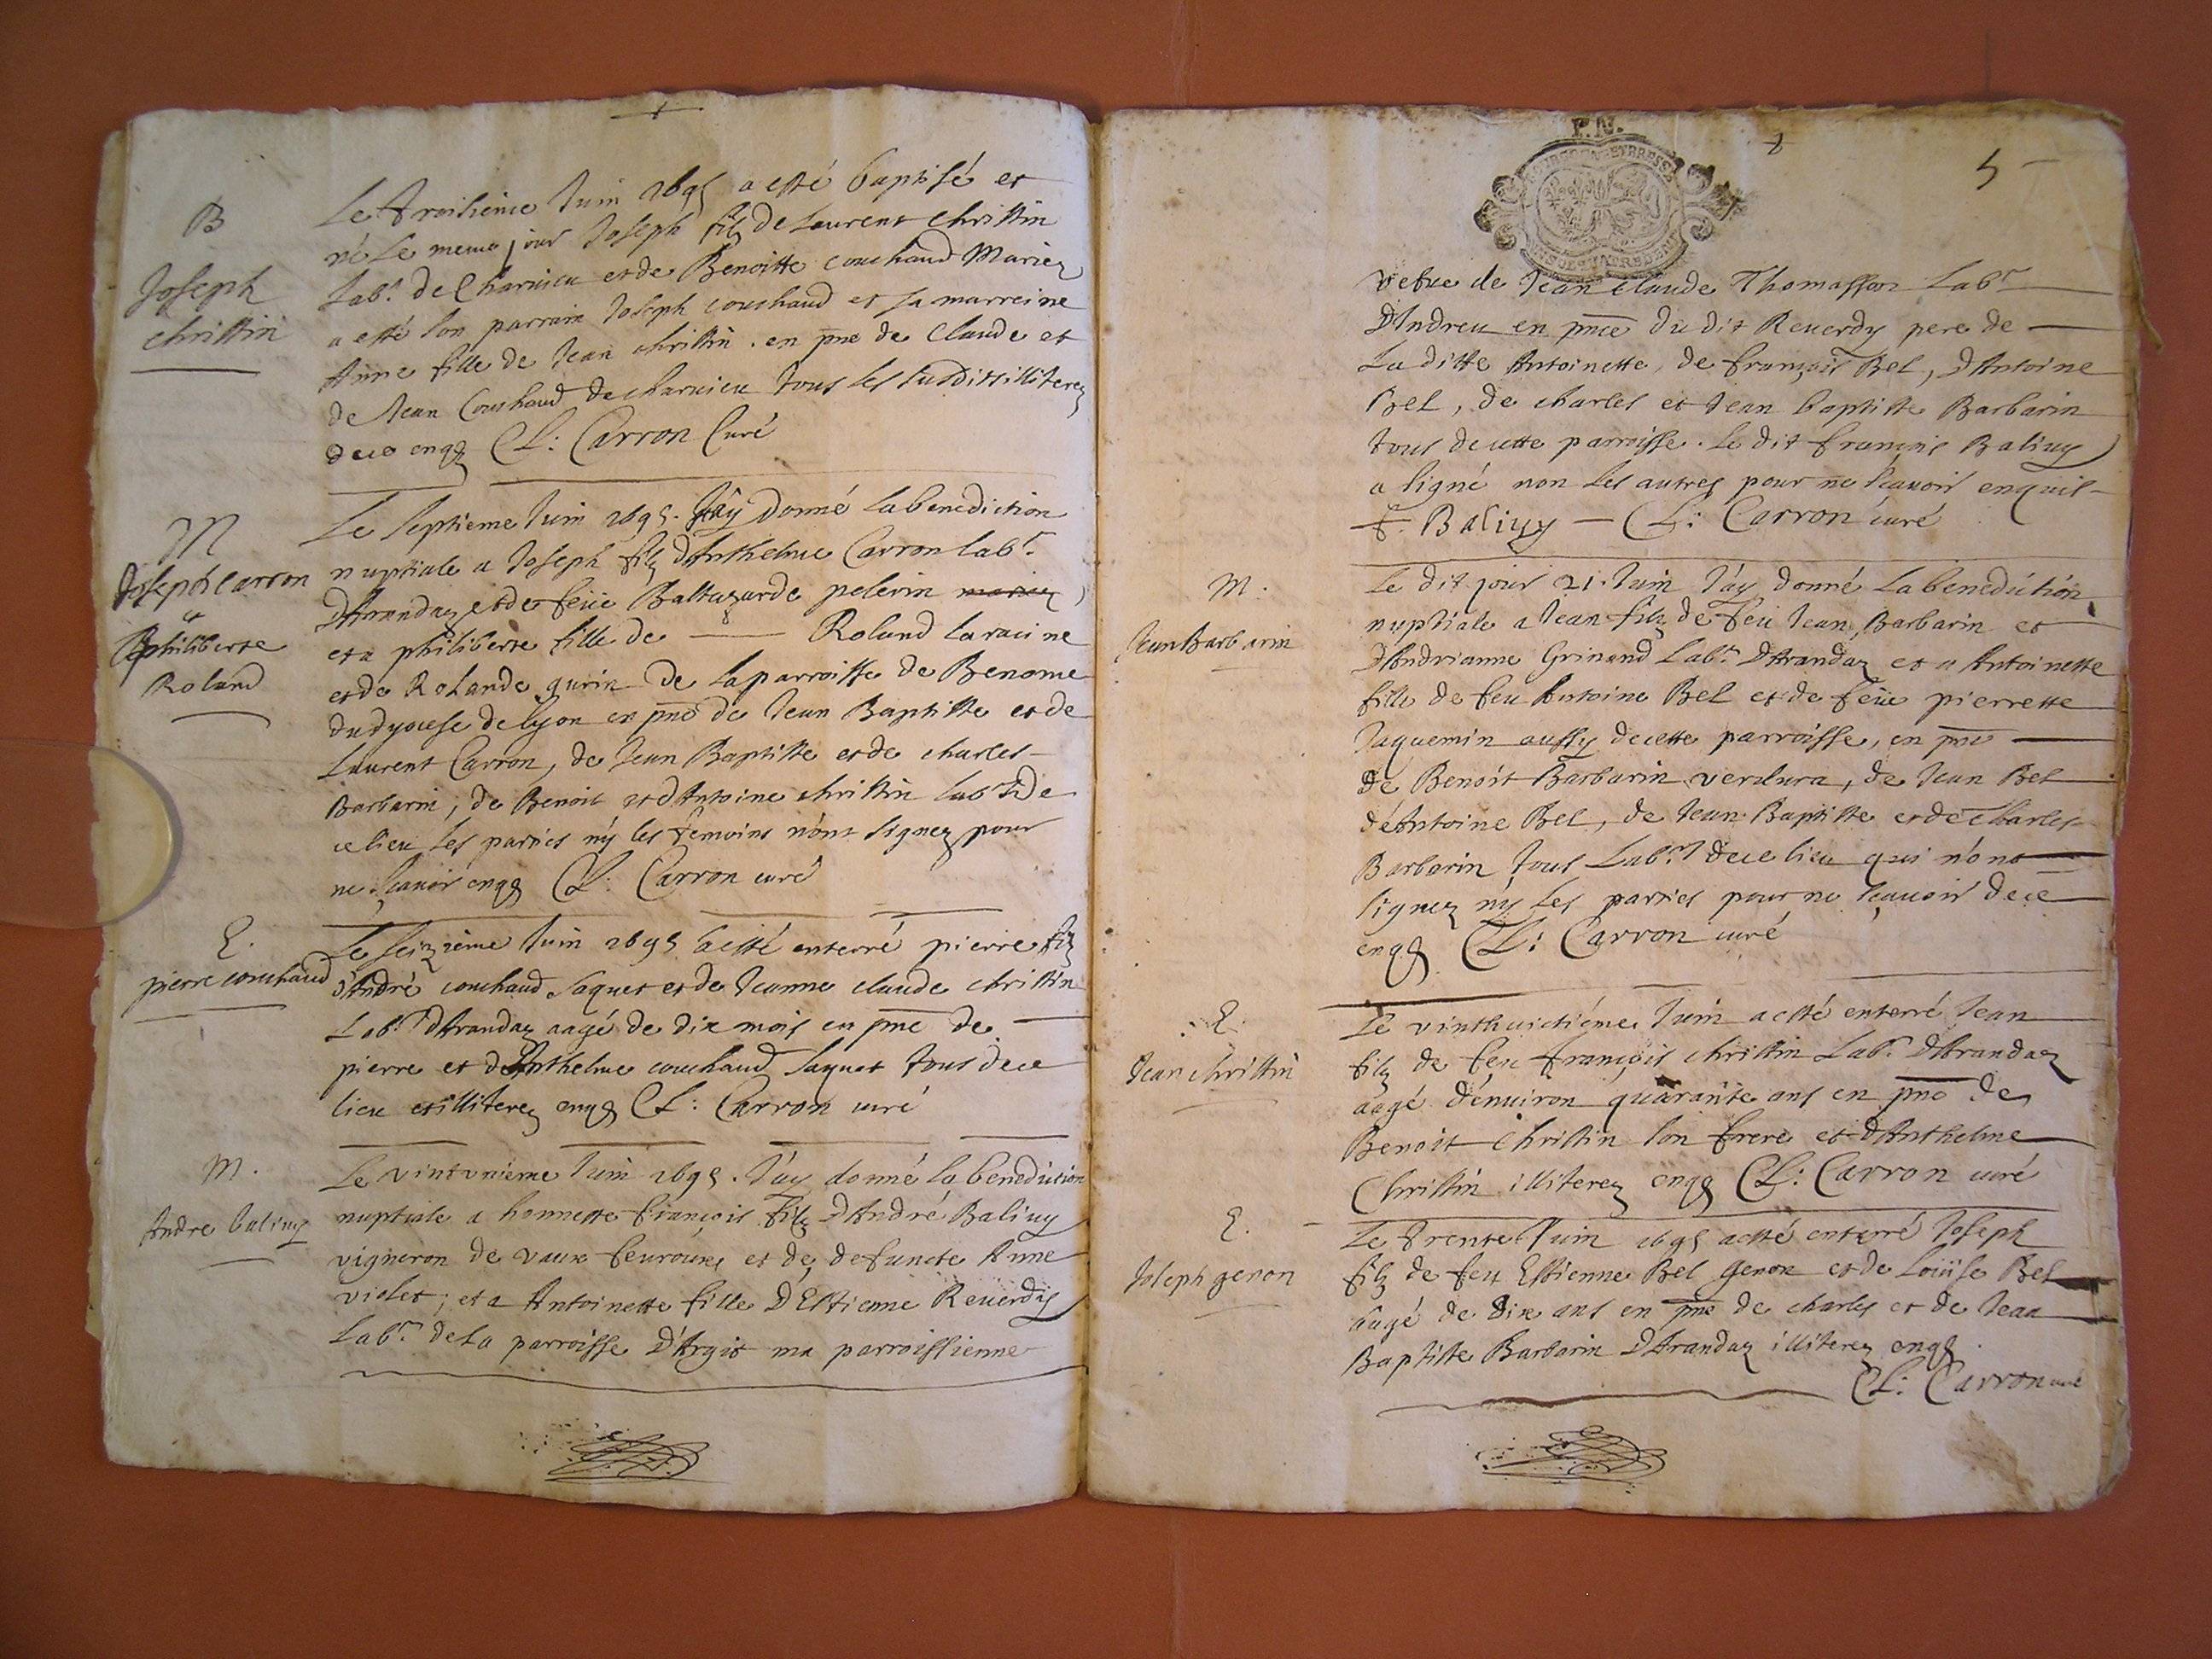 B
Joseph
christin
Le troisieme Juin 1695 a esté baptisé et
né le meme jour Joseph filz de Laurent christin
Labr. de Charvieu et de Benoitte couchaud Mariez
a esté son parrain Joseph couchaud et sa marreine
Anne fille de Jean christin. en pne de Claude et
de Jean Couchaud de charvieu tous les susdits illiterez
de ce enqs Cl: Carron Curé
M
Joseph Carron
et
philiberte
Roland
Le septieme Juin 1695. J'ay donné la benediction
nuptiale a Joseph filz d'Anthelme Carron labr.
D'Arandaz et de feüe Baltazarde pelerin mariez
et a philiberte fille de — Roland la racine
et de Rolande gurin de la parroisse de Benome
du dyocese de lyon en pne de Jean Baptiste et de
Laurent Carron, de Jean Baptiste et de charles
Barbarin, de Benoit et d'Antoine christin labrs de
ce lieu les parties ny les temoins n'ont signez pour
ne sçavoir enqs Cl: Carron curé
E.
pierre couchaud
Le seizieme Juin 1695 a esté enterré pierre filz
d'André couchaud Saquet et de Jeanne claude christin
Labr. d'Arandaz aagé de dix mois en pne de —
pierre et d'Anthelme couchaud saquet tous de ce
lieu et illiterez enqs Cl: Carron curé
M.
Andre baliuy
Le vintunieme Juin 1695. J'ay donné la benediction
nuptiale a honneste françois filz D'André Baliuy
vigneron de vaux feurours et de defuncte Anne
violet; et a Antoinette fille D'Estienne Reuerdy
Labr. de La parroisse D'Argit ma parroissienne
P.N.
5
vefue de Jean claude Thomasson Labr
D'Indreu en pnce du dit Reuerdy pere de —
La ditte Antoinette, de françois Bel, D'Antoine
Bel, de charles et Jean baptiste Barbarin
tous de cette parroisse. le dit françois Baliuy
a signé non les autres pour ne sçauoir enquis
f. Baliuy — Cl: Carron curé
M.
Jean Barbarin
Le dit jour 21. Juin J'ay donné la benediction
nuptiale a Jean filz de feu Jean Barbarin et
D'Andrianne Grinand Labr. D'Arandaz et a Antoinette
fille de feu Antoine Bel et de feüe pierrette
Jaquemin aussy de cette parroisse, en pne —
de Benoit Barbarin verdura, de Jean Bel
d'Antoine Bel, de Jean Baptiste et de Charles
Barbarin tous Labrs de ce lieu qui n'ont
signez ny les parties pour ne sçauoir de ce
enqs Cl: Carron curé
E.
Jean christin
Le vinthuictiéme Juin a esté enterré Jean
filz de feu françois christin Labr. D'Arandaz
aagé d'enuiron quarante ans en pne de
Benoit Christin son frere et d'Anthelme
Christin illiterez enqs Cl: Carron curé
E.
Joseph genon
Le trente Juin 1695 a esté enterré Joseph
filz de feu Estienne Bel genon et de Loüise Bel
aagé de dix ans en pne de charles et de Jean
Baptiste Barbarin D'Arandaz illiterez enqs
Cl: Carron curé